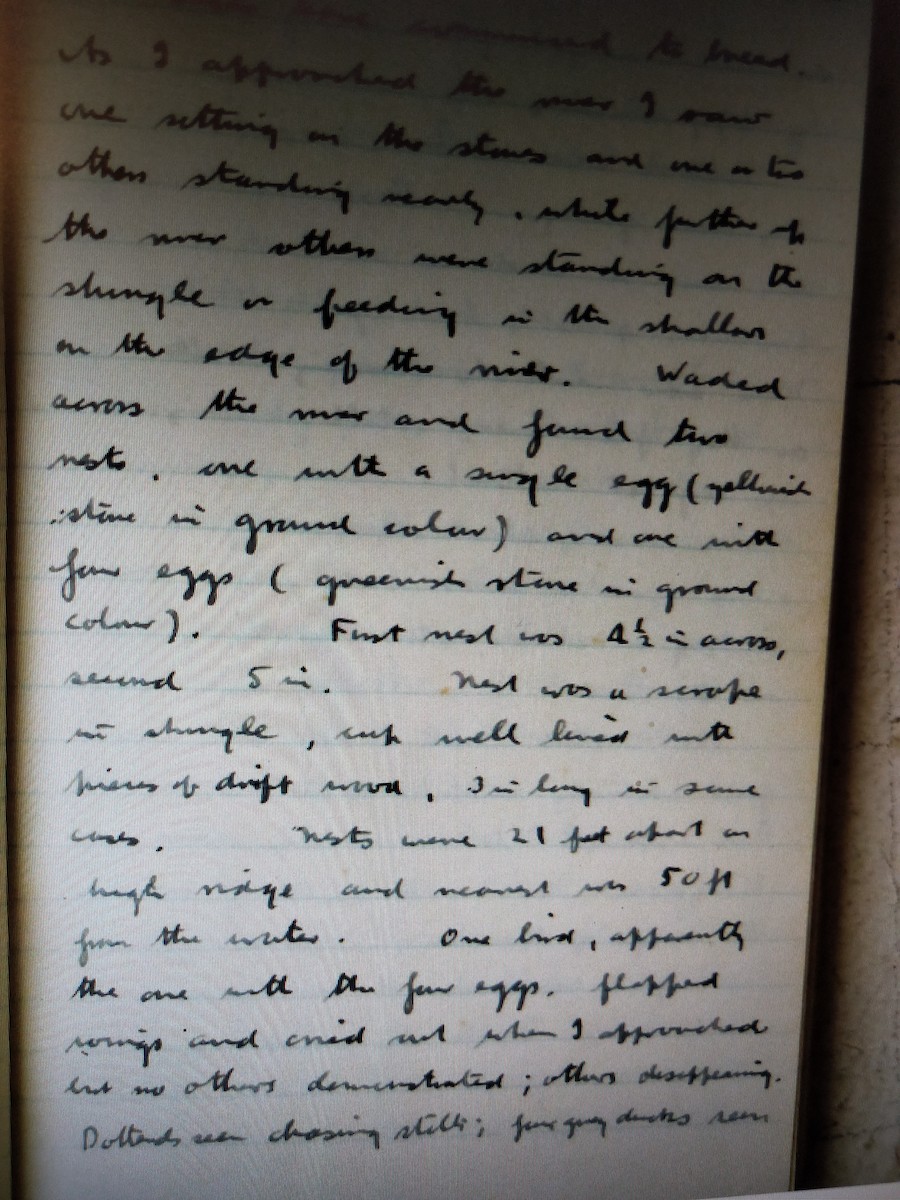 have commenced to breed.
As I approached the river I saw
one sitting on the stones and one or two
others standing nearby, while further up
the river others were standing on the
shingle or feeding in the shallows
on the edge of the river. Waded
across the river and found two
nests, one with a single egg (yellowish
stone in ground colour) and one with
four eggs (greenish stone in ground
colour). First nest was 4½ in across,
second 5 in. Nest was a scrape
in shingle, cup well lined with
pieces of drift wood, 3 in long in some
cases. Nests were 21 feet apart on
high ridge and nearest was 50 ft
from the water. One bird, apparently
the one with the four eggs, flapped
wings and cried out when I approached
but no others demonstrated; others disappearing.
Dotterels seen chasing stilts; four grey ducks seen